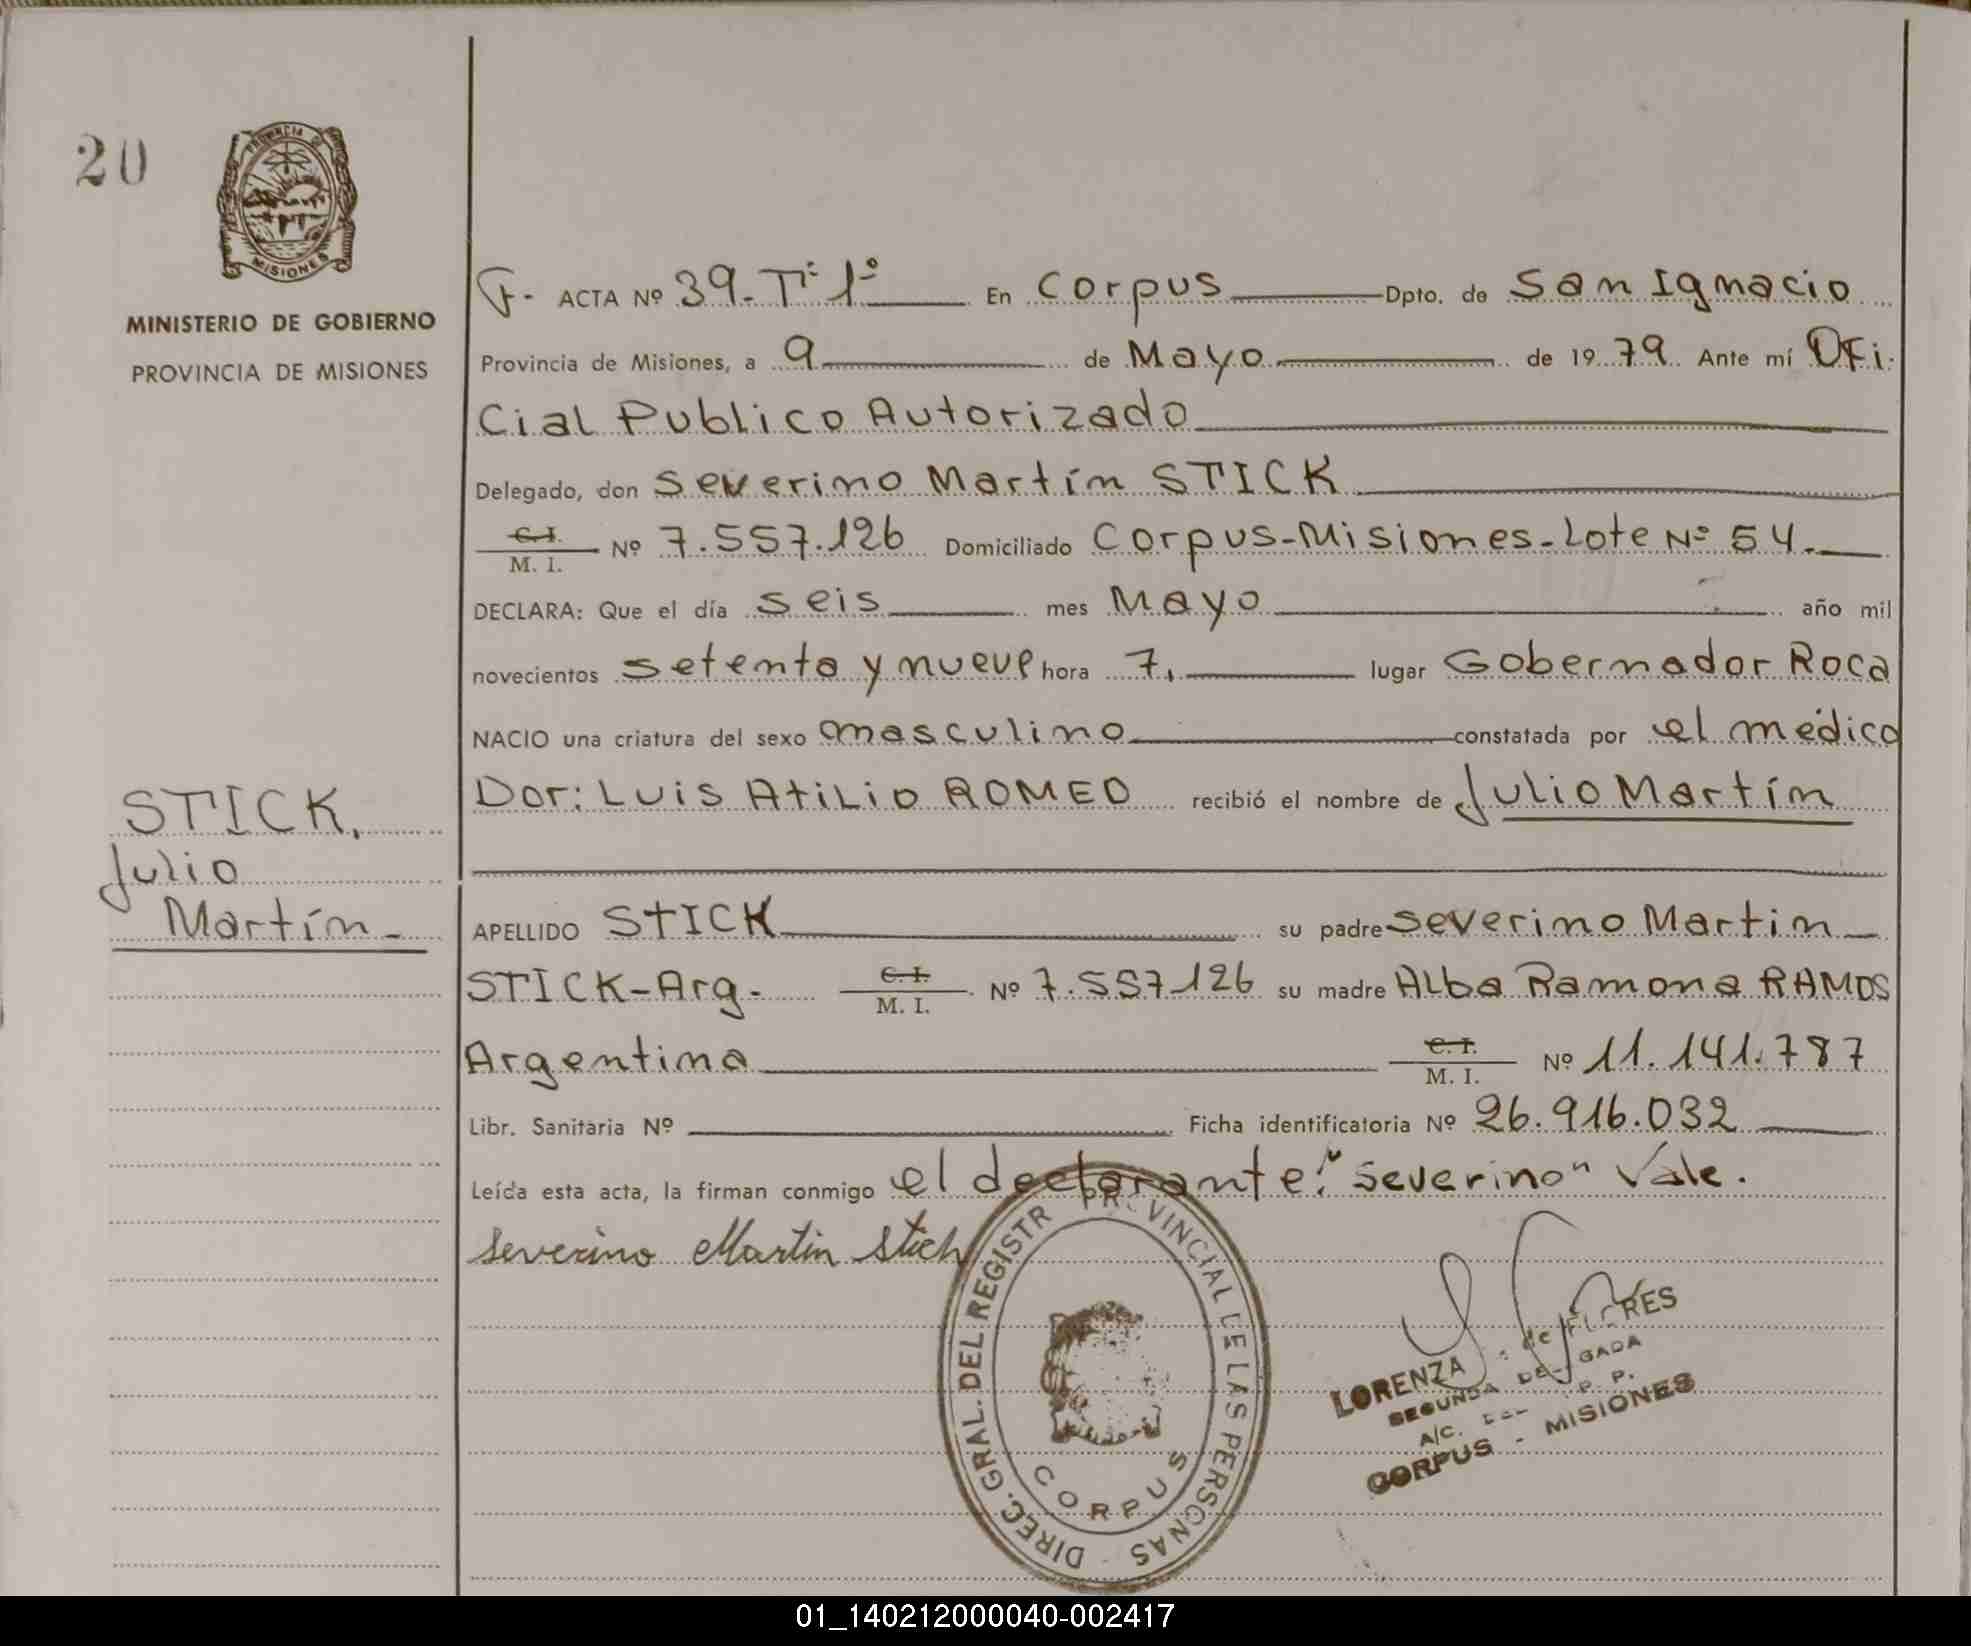 20
PROVINCIA DE
MISIONES
MINISTERIO DE GOBIERNO
PROVINCIA DE MISIONES
STICK,
Julio
Martín-
F- ACTA Nº 39-Tº 1º En Corpus Dpto. de San Ignacio
Provincia de Misiones, a 9 de Mayo de 1979 Ante mí Ofi-
cial Publico Autorizado
Delegado, don Severino Martín STICK
C.I.
M. I. Nº 7.557.126 Domiciliado Corpus-Misiones-Lote Nº 54.
DECLARA: Que el día seis mes Mayo año mil
novecientos setenta y nueve hora 7, lugar Gobernador Roca
NACIO una criatura del sexo masculino constatada por el médico
Dor: Luis Atilio ROMEO recibió el nombre de Julio Martín
APELLIDO STICK su padre Severino Martin
STICK-Arg- C.I. M. I. Nº 7.557126 su madre Alba Ramona RAMOS
Argentina C.I. M. I. Nº 11.141.787
Libr. Sanitaria Nº Ficha identificatoria Nº 26.916.032
Leída esta acta, la firman conmigo el declarante: "severino" Vale.
Severino Martin Stich
DIREC. GRAL. DEL REGISTR PR VINCIAL DE LAS PERSONAS
CORPUS
LORENZA de FLORES
SEGUNDA DELEGADA
A/C. DEL P. P.
CORPUS - MISIONES
01_140212000040-002417